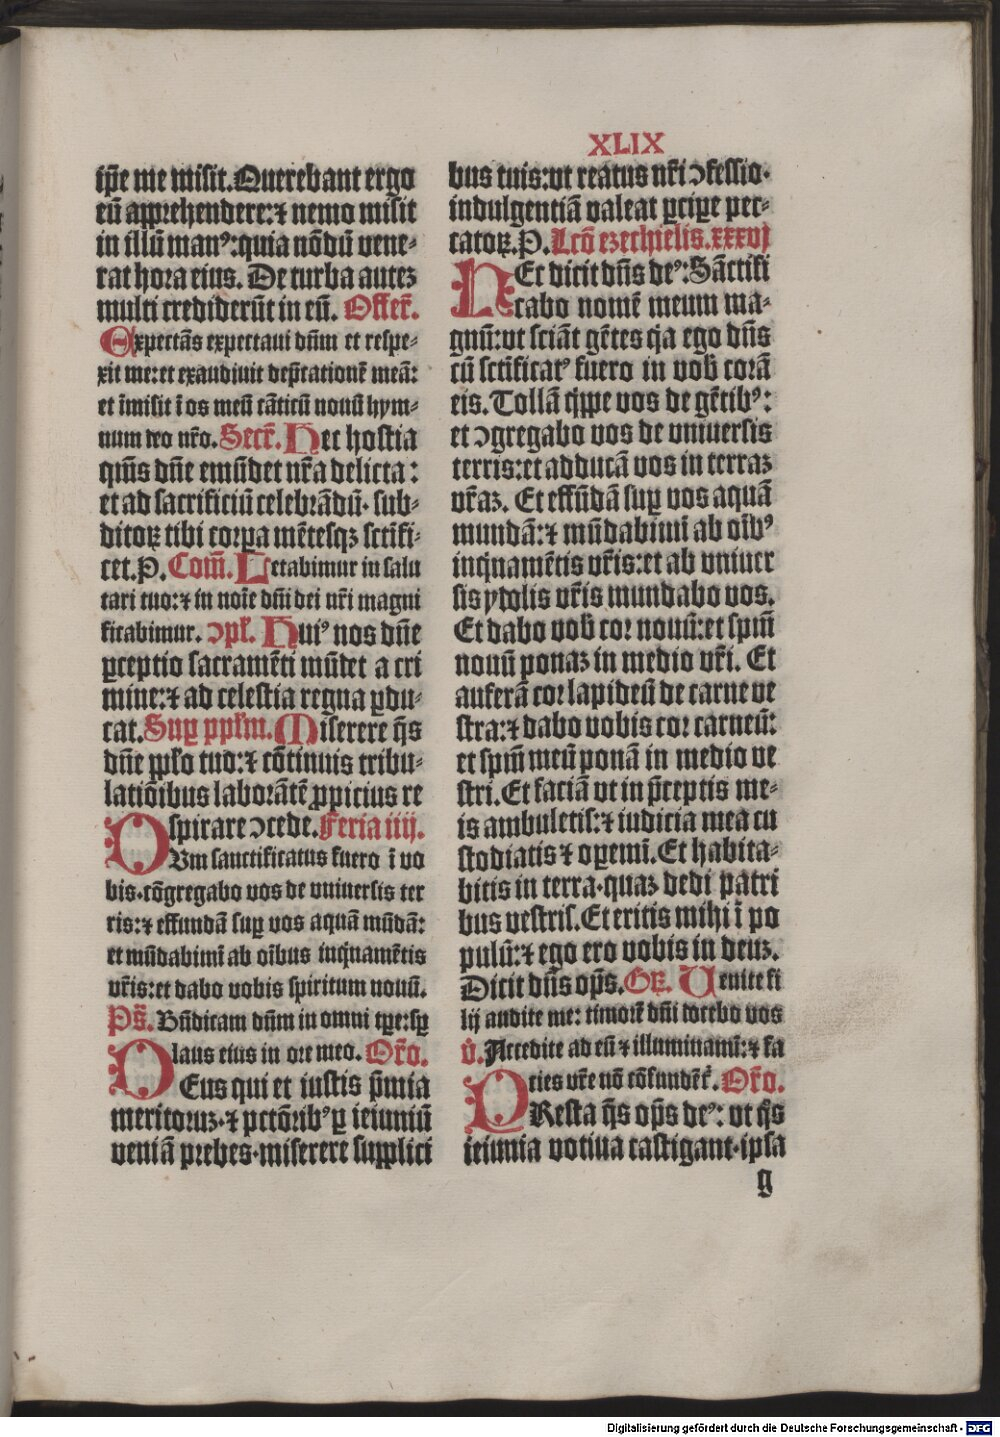 XLIX
ip̃e me misit. Querebant ergo
eū apprehendere: ⁊ nemo misit
in illū man⁹: quia nōdū vene⸗
rat hora eius. De turba autez
multi crediderūt in eū. Offer̃.
Expectās expectaui dñm et respe⸗
xit me: et exaudiuit dep̃cationē meā:
et īmisit ī os meū cāticū nouū hym⸗
num deo nr̃o. Secr̃. Hec hostia
qm̃s dñe emūdet nr̃a delicta:
et ad sacrificiū celebrādū· sub⸗
ditoꝝ tibi corꝑa mētesqꝫ sctīfi⸗
cet. P. Com̃. Letabimur in salu
tari tuo: ⁊ in noīe dñi dei nr̃i magni
ficabimur. ↄpł. Hui⁹ nos dñe
ꝑceptio sacramēti mūdet a cri
mine: ⁊ ad celestia regna ꝑdu⸗
cat. Suꝑ ppłm. Miserere q̄s
dñe ppło tuo: ⁊ cōtinuis tribu⸗
latiōibus laborātē ꝓpicius re
spirare ↄcede. Feria iiij.
CUm sanctificatus fuero ī vo
bis· cōgregabo vos de vniuersis ter
ris: ⁊ effundā suꝑ vos aquā mūdā:
et mūdabimī ab oībus inq̇namētis
vr̃is: et dabo vobis spiritum nouū.
Ps̃. Bñdicam dñm in omni tꝑe: sꝑ
laus eius in ore meo. Or̃o.
DEus qui et iustis p̃mia
meritoruz· ⁊ pctōrib⁹ ꝑ ieiuniū
veniā prebes· miserere supplici
bus tuis: vt reatus nr̃i ↄfessio·
indulgentiā valeat ꝑciꝑe pec⸗
catoꝝ. P. Lcō ezechielis. xxxvj
HEc dicit dñs de⁹: Sāctifi
cabo nomē meum ma⸗
gnū: vt sciāt gētes q̇a ego dñs
cū sctīficat⁹ fuero in vob̄ corā
eis. Tollā q̇ppe vos de gētib⁹:
et ↄgregabo vos de vniuersis
terris: et adducā vos in terraz
vr̃az. Et effūdā suꝑ vos aquā
mundā: ⁊ mūdabimī ab oīb⁹
inq̇namētis vr̃is: et ab vniuer
sis ydolis vr̃is mundabo vos.
Et dabo vob̄ cor nouū: et spm̄
nouū ponaz in medio vr̃i. Et
auferā cor lapideū de carne ve
stra: ⁊ dabo vobis cor carneū:
et spm̄ meū ponā in medio ve
stri. Et faciā vt in p̄ceptis me⸗
is ambuletis: ⁊ iudicia mea cu
stodiatis ⁊ oꝑemī. Et habita⸗
bitis in terra· quaz dedi patri
bus vestris. Et eritis mihi ī po
pulū: ⁊ ego ero vobis in deuz.
Dicit dñs op̄s. Gꝝ. Uenite fi
lij audite me: timorē dñi docebo vos
v̊. Accedite ad eū ⁊ illuminamī: ⁊ fa
cies vr̃e nō cōfundēt̉. Or̃o.
PResta q̄s op̄s de⁹: vt q̇s
ieiunia votiua castigant· ipsa
g
Digitalisierung gefördert durch die Deutsche Forschungsgemeinschaft - DFG